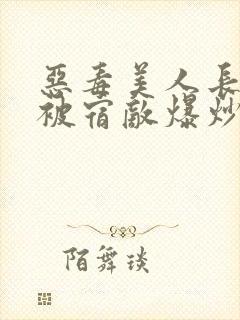 惡毒美人長
被宿敵爆炒
陌舞琰